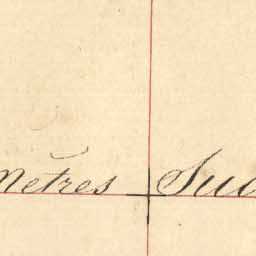 Metres Suc